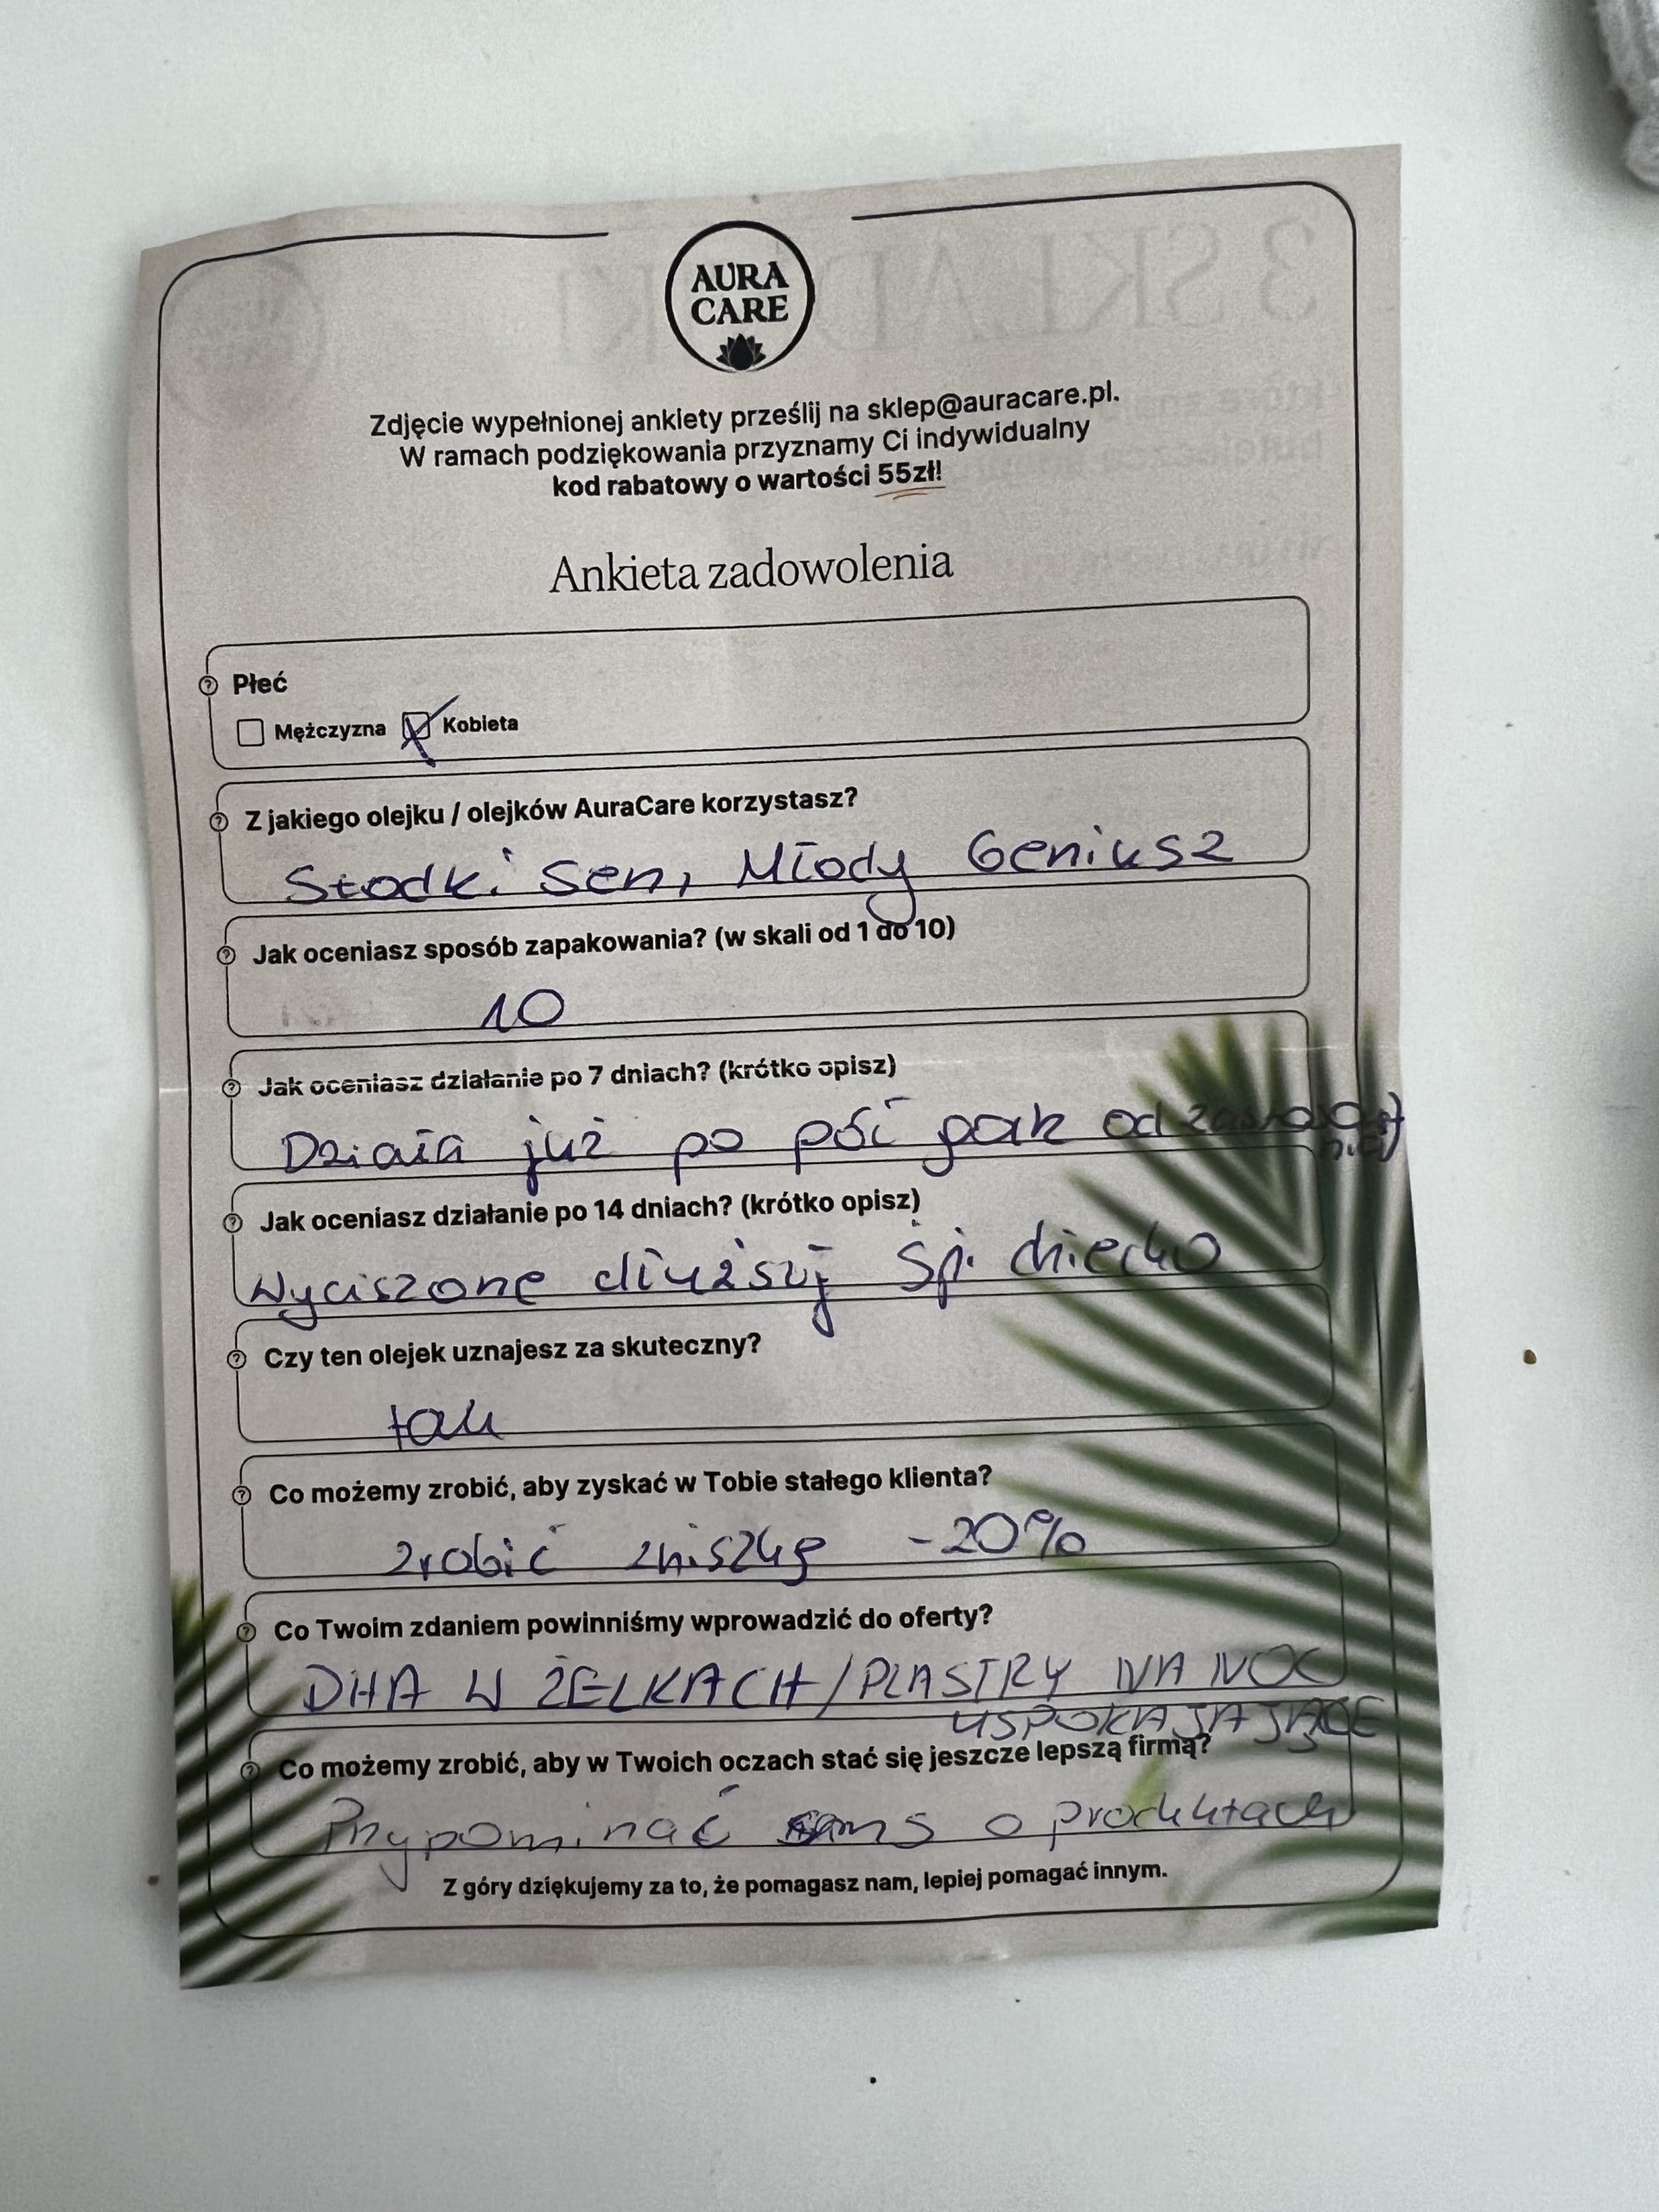 AURA
CARE
Zdjęcie wypełnionej ankiety prześlij na sklep@auracare.pl.
W ramach podziękowania przyznamy Ci indywidualny
kod rabatowy o wartości 55zł!
Ankieta zadowolenia
Płeć
Mężczyzna Kobieta
Z jakiego olejku / olejków AuraCare korzystasz?
Słodki Sen, Młody Geniusz
Jak oceniasz sposób zapakowania? (w skali od 1 do 10)
10
Jak oceniasz działanie po 7 dniach? (krótko opisz)
Działa już po pół godz od
Jak oceniasz działanie po 14 dniach? (krótko opisz)
Wyciszone dłużej śpi dziecko
Czy ten olejek uznajesz za skuteczny?
tak
Co możemy zrobić, aby zyskać w Tobie stałego klienta?
zrobić zniszkę -20%
Co Twoim zdaniem powinniśmy wprowadzić do oferty?
DHA W ŻELKACH/PLASTRY NA NOC
USPOKAJAJĄCE
Co możemy zrobić, aby w Twoich oczach stać się jeszcze lepszą firmą?
Przypominać sms o produktach
Z góry dziękujemy za to, że pomagasz nam, lepiej pomagać innym.